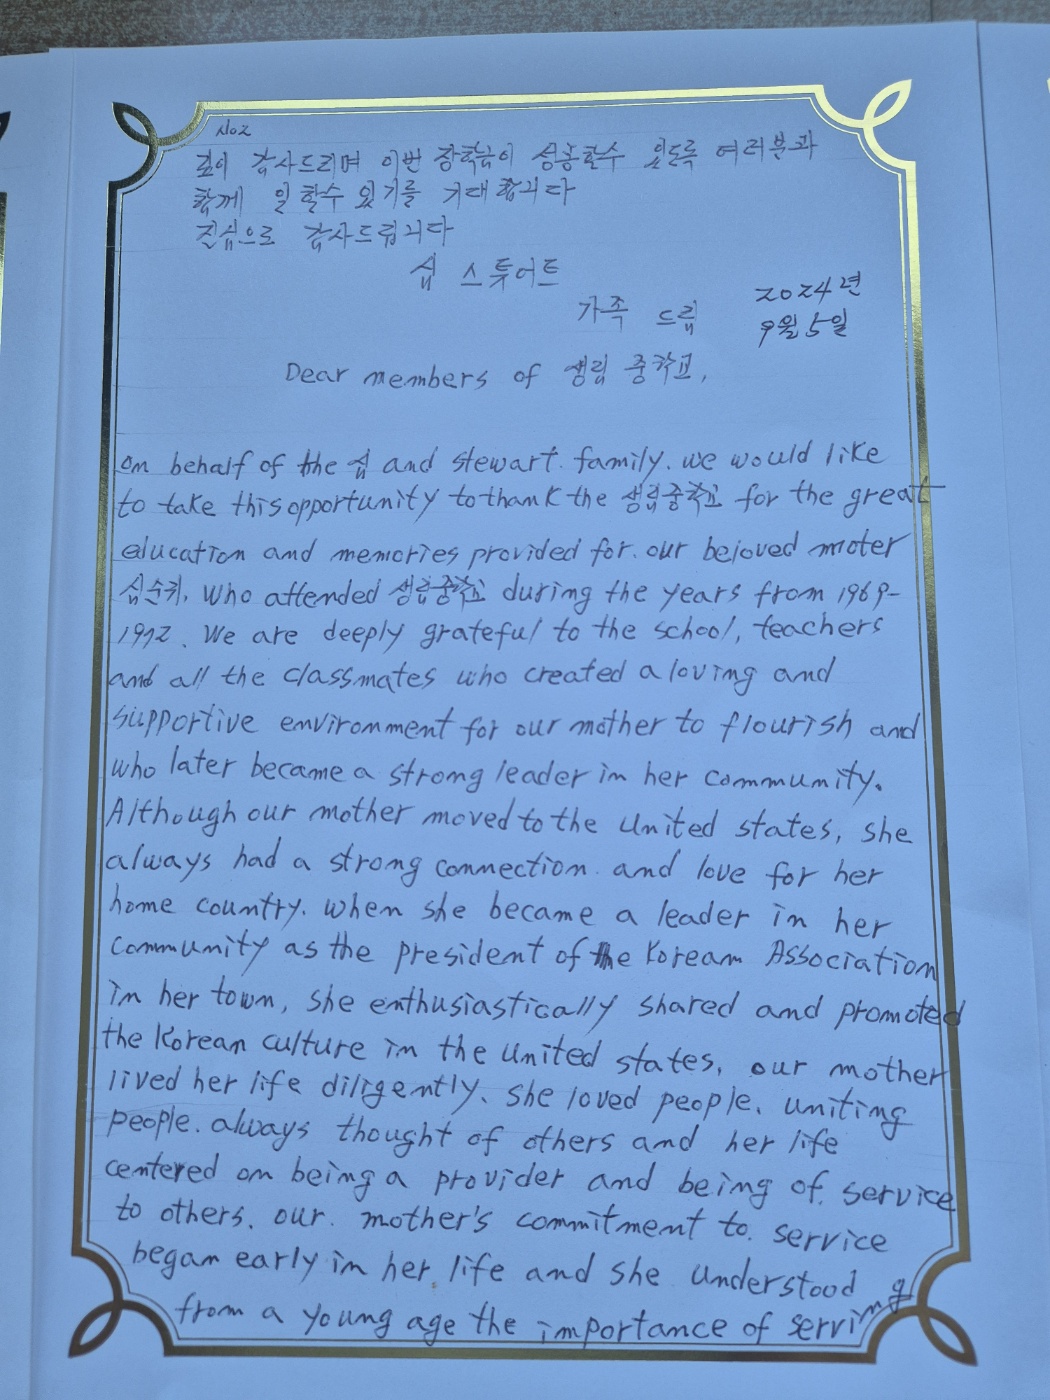 No2
깊이 감사드리며 이번 장학금이 성공할수 있도록 여러분과
함께 일 할수 있기를 기대합니다
진심으로 감사드립니다
심 스튜어트
가족 드림
2024년
9월 5일
Dear members of 생림 중학교,
on behalf of the 심 and stewart. family. we would like
to take this opportunity to thank the 생림중학교 for the great
education and memories provided for. our beloved moter
심순희, who attended 생림중학교 during the years from 1969-
1972. We are deeply grateful to the school, teachers
and all the classmates who created a loving and
supportive environment for our mother to flourish and
who later became a strong leader in her community.
Although our mother moved to the United states, she
always had a strong connection and love for her
home country. when she became a leader in her
community as the president of the Korean Association
in her town, she enthusiastically shared and promoted
the Korean culture in the United states, our mother
lived her life diligently. she loved people. uniting
people. always thought of others and her life
centered on being a provider and being of. service
to others. our. mother's commitment to. service
began early in her life and she understood
from a young age the importance of serving